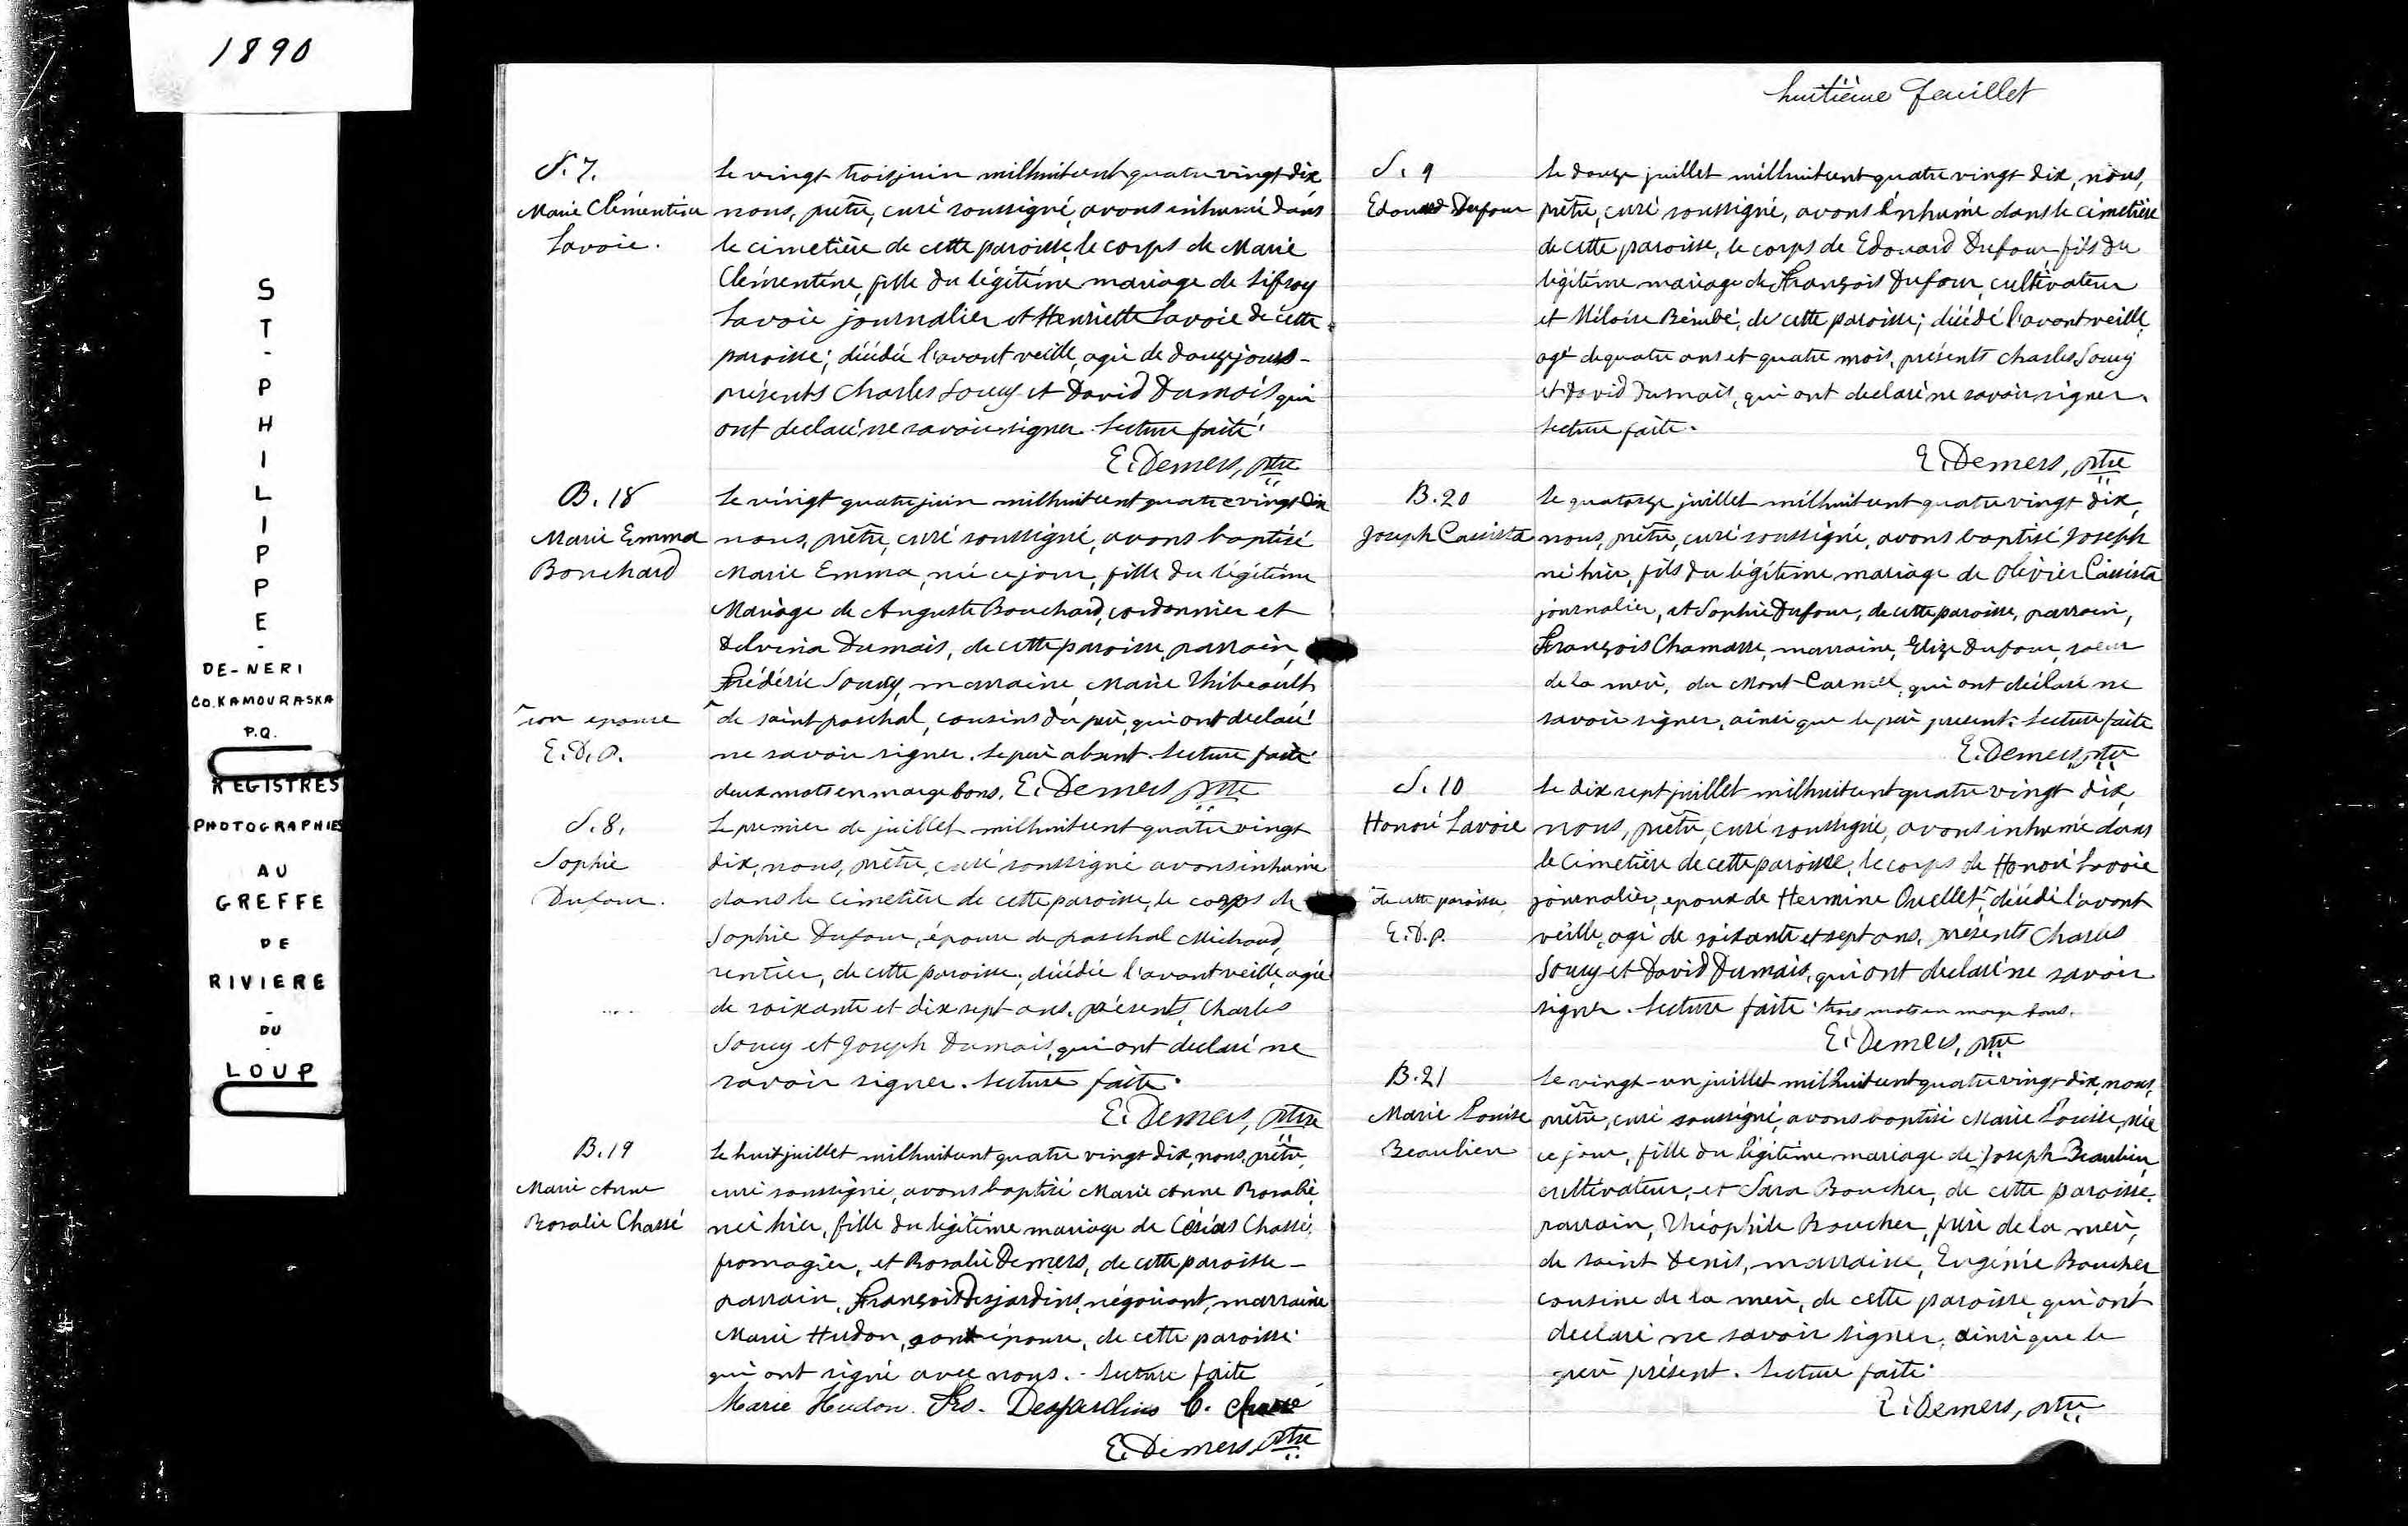 1890
ST-PHILIPPE-
DE-NERI
CO. KAMOURASKA
P.Q.
REGISTRES
PHOTOGRAPHIES
AU
GREFFE
DE
RIVIERE
-
DU
-
LOUP
S. 7.
Marie Clémentine
Lavoie.
Le vingt trois juin mil huit cent quatre vingt dix
nous, prêtre, curé soussigné, avons inhumé dans
le cimetière de cette paroisse, le corps de Marie
Clémentine, fille du légitime mariage de Sifroy
Lavoie journalier et Henriette Lavoie de cette
paroisse; décédée l'avant veille, agée de douze jours -
présents Charles Soucy et David Dumais, qui
ont declaré ne savoir signer. Lecture faite.
E. Demers, ptre
B. 18
Marie Emma
Bouchard
Le vingt quatre juin mil huit cent quatre vingt dix
nous, prêtre, curé soussigné, avons baptisé
Marie Emma, née ce jour, fille du légitime
Mariage de Auguste Bouchard, cordonnier et
Delvina Dumais, de cette paroisse, parrain,
Frédéric Soucy, marraine Marie Thibeault
son epouse
de saint paschal, cousins du père, qui ont declaré
E. D. P.
ne savoir signer. Le père absent. Lecture faite
deux mots en marge bons. E. Demers ptre
S. 8.
Sophie
Dufour.
Le premier de juillet mil huit cent quatre vingt
dix, nous, prêtre, curé soussigné avons inhumé
dans le cimetière de cette paroisse, le corps de
Sophie Dufour, épouse de paschal Michaud,
rentier, de cette paroisse; décédée l'avant veille, agée
de soixante et dix sept ans. présents, Charles
Soucy et Joseph Dumais, qui ont declaré ne
savoir signer. Lecture faite.
E. Demers, ptre
B. 19
Marie Anne
Rosalie Chassé
Le huit juillet mil huit cent quatre vingt dix, nous, prêtre,
curé soussigné, avons baptisé Marie Anne Rosalie,
née hier, fille du légitime mariage de Chassé,
fromagier, et Rosalie Demers, de cette paroisse -
parrain, François Desjardins, négociant, marraine
Marie Hudon, son épouse, de cette paroisse.
qui ont signé avec nous. - Lecture faite
Marie Hudon. Frs. Desjardins C. Chassé
E. Demers, ptre
huitième feuillet
S. 9
Edouard Dufour
Le douze juillet mil huit cent quatre vingt dix, nous,
prêtre, curé soussigné, avons inhumé dans le cimetière
de cette paroisse, le corps de Edouard Dufour, fils du
légitime mariage de François Dufour, cultivateur
et Bérubé, de cette paroisse; décédé l'avant veille,
agé de quatre ans et quatre mois. présents Charles Soucy
et David Dumais, qui ont declaré ne savoir signer.
Lecture faite.
E. Demers, ptre
B. 20
Joseph Caissista
Le quatorze juillet mil huit cent quatre vingt dix,
nous, prêtre, curé soussigné, avons baptisé Joseph
né hier, fils du légitime mariage de Olivier
journalier, et Sophie Dufour, de cette paroisse, parrain,
François Chamarre, marraine, Elize Dufour, soeur
de la mère, du Mont-Carmel, qui ont déclaré ne
savoir signer, ainsi que le père present. Lecture faite
E. Demers, ptre
S. 10
Honoré Lavoie
Le dix sept juillet mil huit cent quatre vingt dix,
nous, prêtre, curé soussigné, avons inhumé dans
le cimetière de cette paroisse, le corps de Honoré Lavoie
de cette paroisse,
journalier, epoux de Hermine Ouellet, décédé l'avant
E. D. P.
veille, agé de soixante et sept ans. présents Charles
Soucy et David Dumais, qui ont declaré ne savoir
signer. Lecture faite. trois mots en marge bons.
E. Demers, ptre
B. 21
Marie Louise
Beaulieu
Le vingt-un juillet mil huit cent quatre vingt dix, nous,
prêtre, curé soussigné, avons baptisé Marie Louise, née
ce jour, fille du légitime mariage de Joseph Beaulieu,
cultivateur, et Sara Boucher, de cette paroisse.
parrain, Théophile Boucher, frère de la mère,
de saint Denis, marraine, Eugénie Boucher
cousine de la mère, de cette paroisse, qui ont
declaré ne savoir signer, ainsi que le
père présent. Lecture faite.
E. Demers, ptre